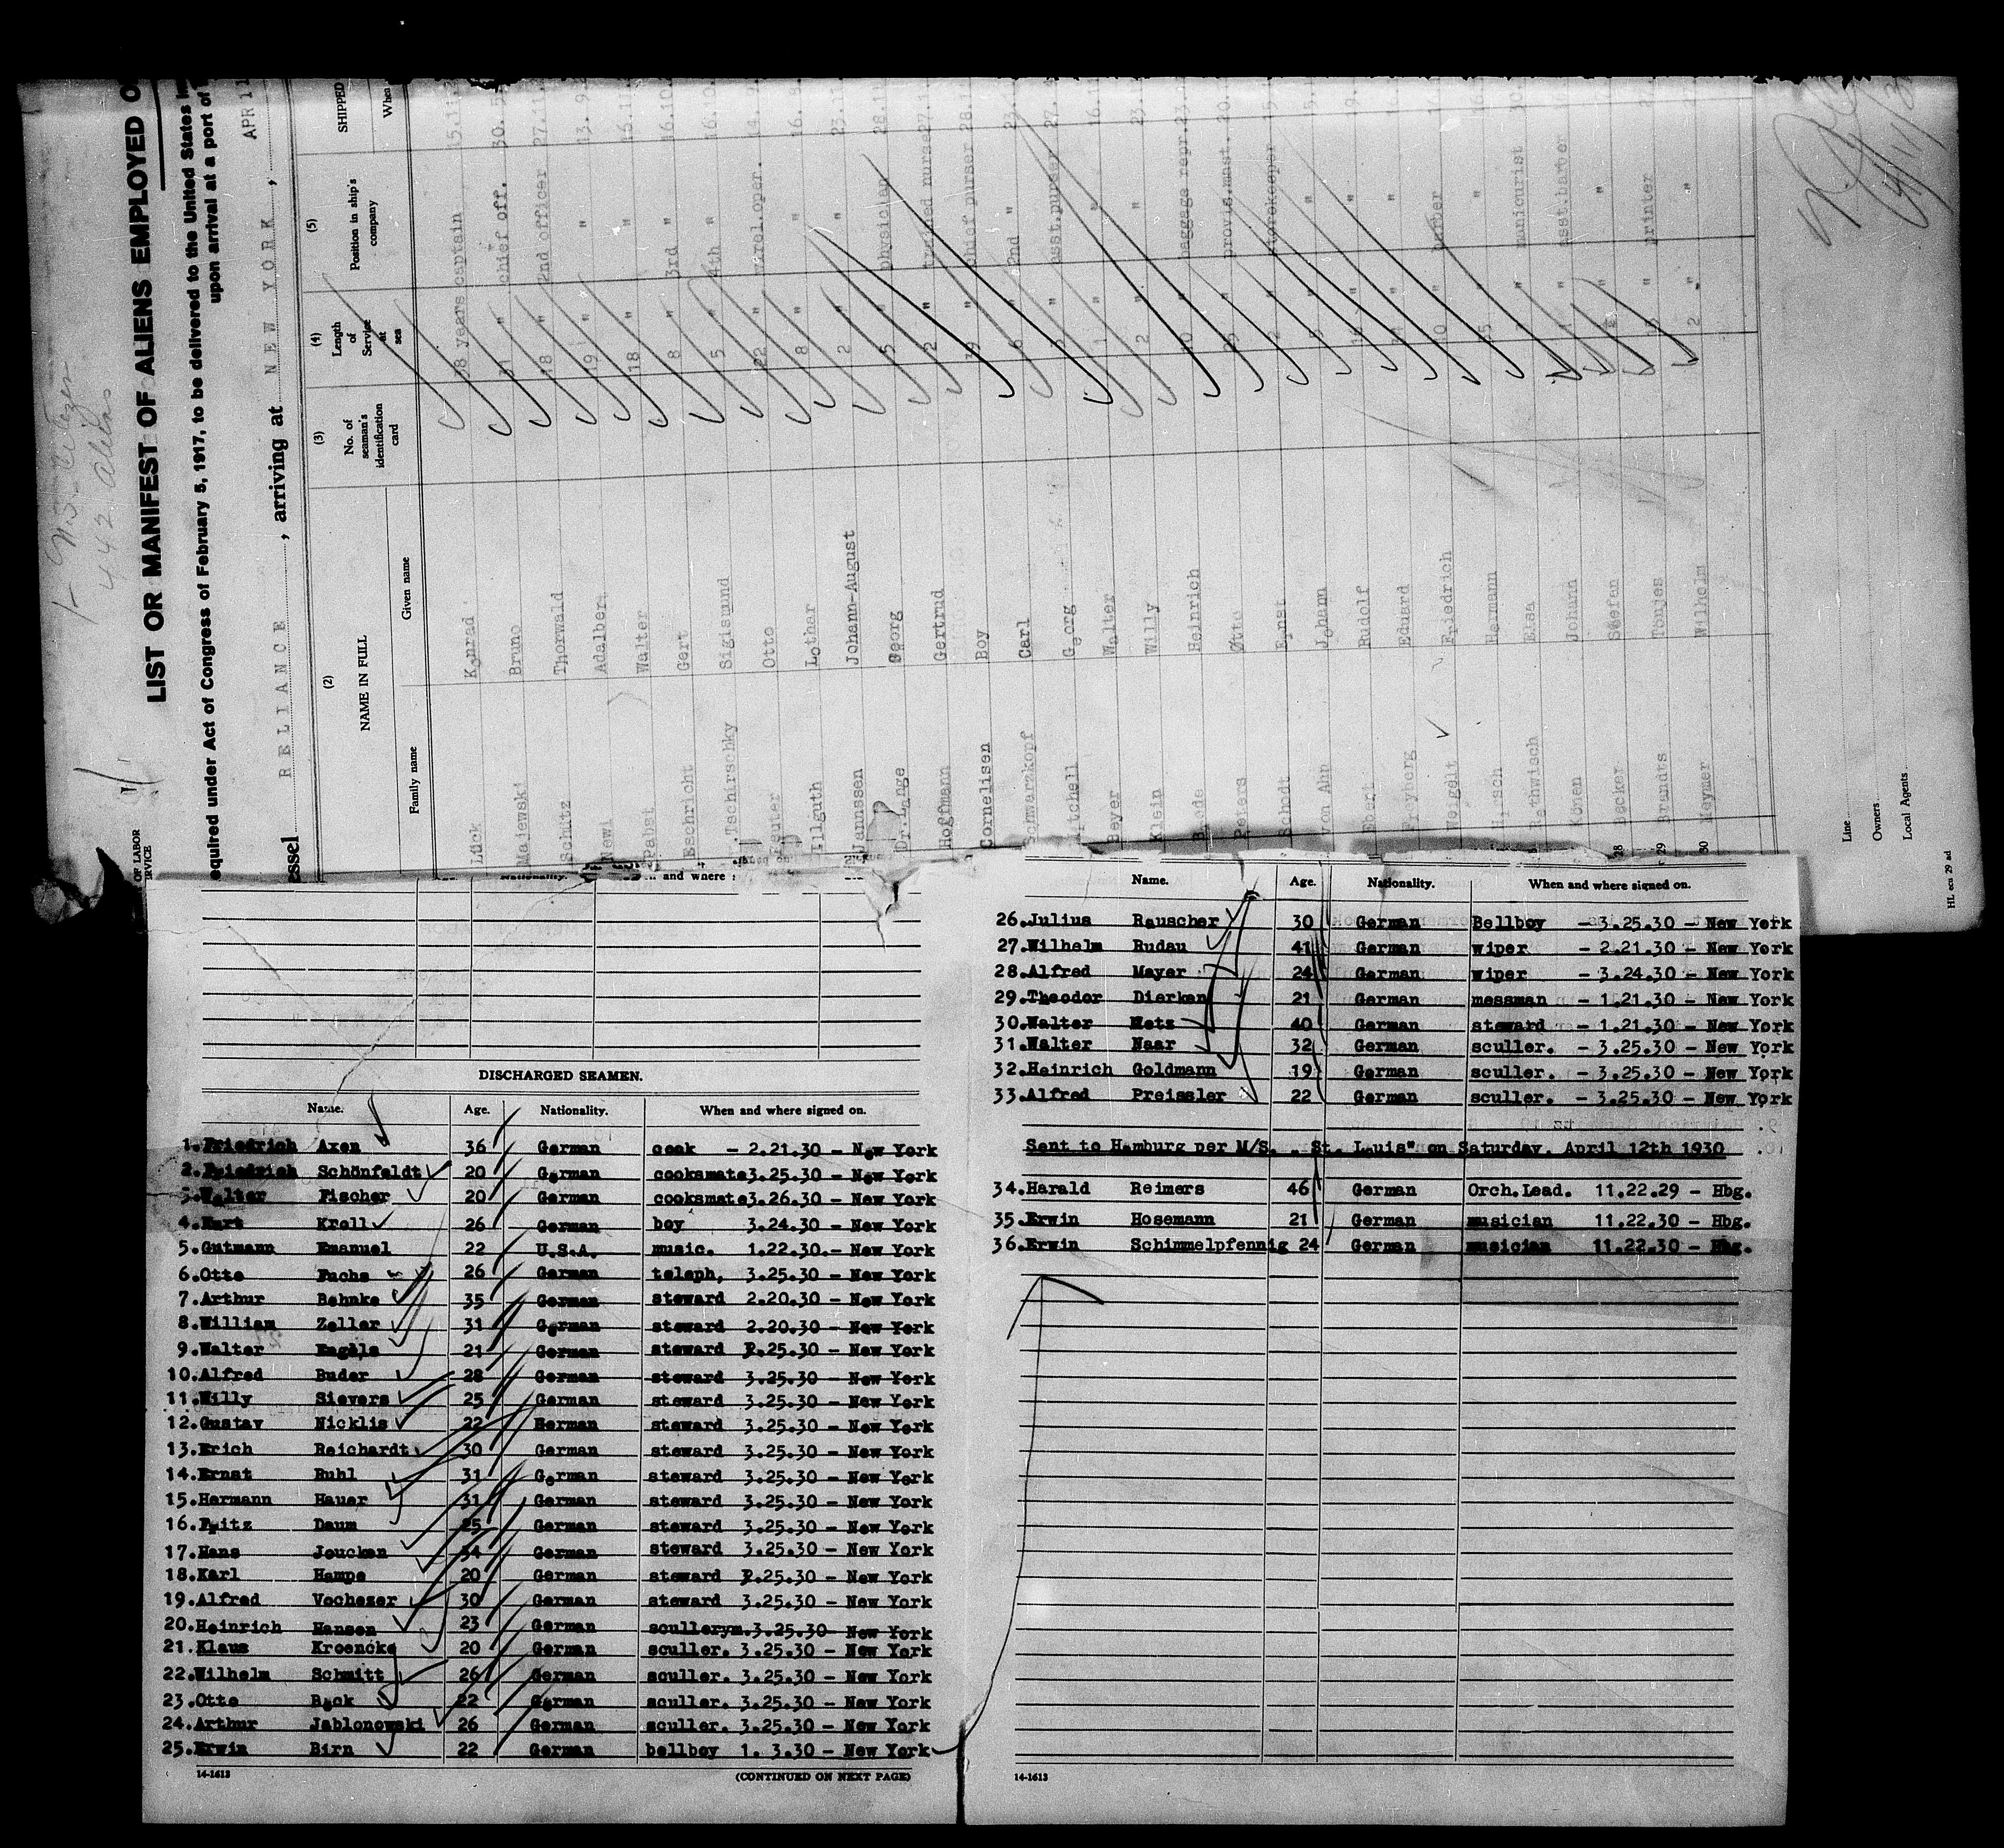 1- U.S. Citizen
442 Aliens
OF LABOR
LIST OR MANIFEST OF ALIENS EMPLOYED O
equired under Act of Congress of February 5, 1917, to be delivered to the United States
upon arrival at a port of
essel RELIANCE , arriving at NEW YORK , APR 11
(2) (3) (4) (5)
NAME IN FULL No. of seaman's identification card Length of Service at sea Position in ship's company SHIPPED
Family name Given name When
Lück Konrad 38 years captain 15.11.
Majewski Bruno 31 " chief off. 30. 5.
Schütz Thorwald 18 " 2nd officer 27.11.
Newi Adalbert 19 " " 13. 9.
Pabst Walter 18 " " 15.11.
Eschricht Gert 8 " 3rd " 16.10.
Tschirschky Sigismund 5 " 4th " 16.10.
Reuter Otto 22 " wirel.oper. 14. 9.
Illguth Lothar 8 " " 16. 8.
Jannssen Johann-August 2 " " 23.11
Dr.Lange Georg 5 " physician 28.11
Hoffmann Gertrud 2 " trained nurse 27.1
Cornelisen Boy 19 " chief purser 28.1
Schwarzkopf Carl 6 " 2nd " 23.
Mitchell Georg " asst.purser 27.
Beyer Walter 1 " " 16.1
Klein Willy 2 " " 23.1
Brede Heinrich 10 " baggage repr. 23.
Peters Otto 25 " provis.mast. 20.
Schodt Ernst 2 " storekeeper 15.
von Ahn Johann 5 " " 15.
Ebert Rudolf " " 19.
Freyberg Eduard " "
Weigelt Friedrich 10 " barber
Hirsch Hermann 15 " "
Rethwisch Elsa " manicurist 30.
Könen Johann " asst.barber
28 Becker Stefan " "
29 Brandts Tönjes " printer
30 Meymer Wilhelm 2 " "
Line
Owners
Local Agents
HL ecu 29 ad
Nationality. and where
DISCHARGED SEAMEN.
Name. Age. Nationality. When and where signed on.
1.Friedrich Axen 36 German cook - 2.21.30 - New York
2.Friedrich Schönfeldt 20 German cooksmate3.25.30 - New York
3.Walter Fischer 20 German cooksmate3.26.30 - New York
4.Kurt Kroll 26 German boy 3.24.30 - New York
5.Gutmann Emanuel 22 U.S.A. music. 1.22.30.- New York
6.Otto Fuchs 26 German teleph, 3.25.30 - New York
7.Arthur Behnke 35 German steward 2.20.30 - New York
8.William Zeller 31 German steward 2.20.30 - New York
9.Walter Engels 21 German steward 2.25.30 - New York
10.Alfred Buder 28 German steward 3.25.30 - New York
11.Willy Sievers 25 German steward 3.25.30 - New York
12.Gustav Nicklis 22 Herman steward 3.25.30 - New York
13.Erich Reichardt 30 German steward 3.25.30 - New York
14.Ernst Ruhl 31 German steward 3.25.30 - New York
15.Hermann Hauer 31 German steward 3.25.30 - New York
16.Fritz Daum 25 German steward 3.25.30 - New York
17.Hans Joucken 34 German steward 3.25.30 - New York
18.Karl Hampe 20 German steward 2.25.30 - New York
19.Alfred Vochezer 30 German steward 3.25.30 - New York
20.Heinrich Hansen 23 German sculerym.3.25.30- New York
21.Klaus Kroencke 20 German sculler. 3.25.30 - New York
22.Wilhelm Schmitt 26 German sculler. 3.25.30 - New York
23.Otto Back 22 German sculler. 3.25.30 - New York
24.Arthur Jablonowski 26 German sculler. 3.25.30 - New York
25.Erwin Birn 22 German bellboy 1. 3.30 - New York
14-1613 (CONTINUED ON NEXT PAGE)
Name. Age. Nationality. When and where signed on.
26.Julius Rauscher 30 German Bellboy - 3.25.30 - New York
27.Wilhelm Rudau 41 German wiper - 2.21.30 - New York
28.Alfred Mayer 24 German wiper - 3.24.30 - New York
29.Theodor Dierken 21 German messman - 1.21.30 - New York
30.Walter Metz 40 German steward - 1.21.30 - New York
31.Walter Naar 32 German sculler. - 3.25.30 - New York
32.Heinrich Goldmann 19 German sculler. - 3.25.30 - New York
33.Alfred Preissler 22 German sculler. - 3.25.30 - New York
Sent to Hamburg per M/S. "St. Louis" on Saturday, April 12th 1930
34.Harald Reimers 46 German Orch.Lead. 11.22.29 - Hbg.
35.Erwin Hosemann 21 German musician 11.22.30 - Hbg.
36.Erwin Schimmelpfennig 24 German musician 11.22.30 - Hbg.
14-1613